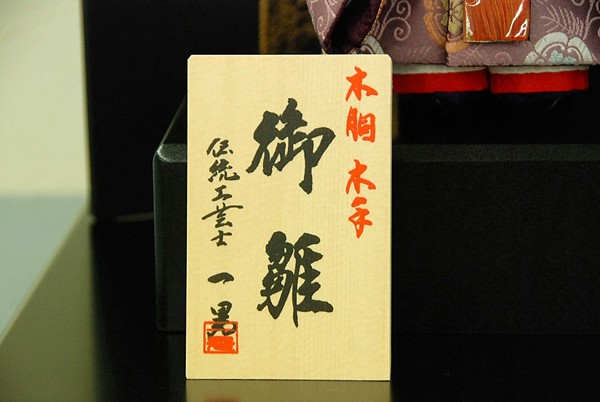 木胴 木手
御雛
伝統工芸士 一